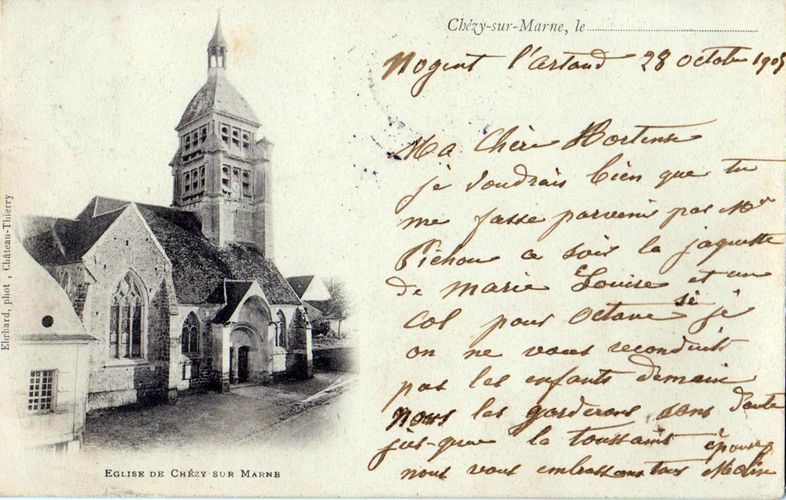 Chézy-sur-Marne, le
Nogent l'artaud 28 octobre 1905
Ma Chère Hortense
je voudrais bien que tu
me fasse parvenir par Mr
Pichon ce soir la jaquette
de marie Louise et un
col pour Octave si je
on ne vous reconduit
pas les enfants demain
nous les garderons sans doute
jus-que la toussaint
nous vous embrassons tous
Ehrhard, phot, Château-Thierry
EGLISE DE CHÉZY SUR MARNE